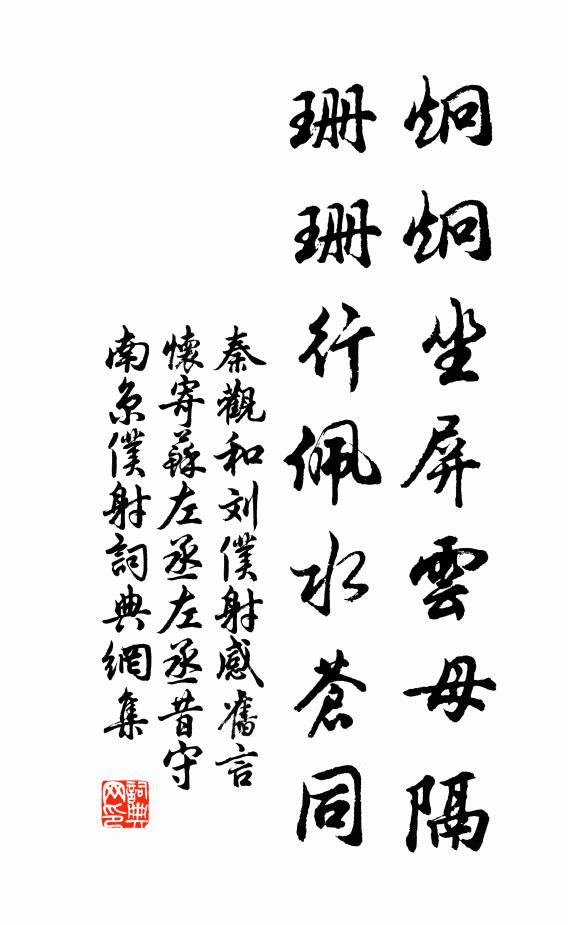 炯炯坐屏雲母隔
珊珊行佩水蒼同
秦觀和刘僕射感舊言
懷寄蘇左丞左丞昔守
南京僕射詞典網集
詞典
网印